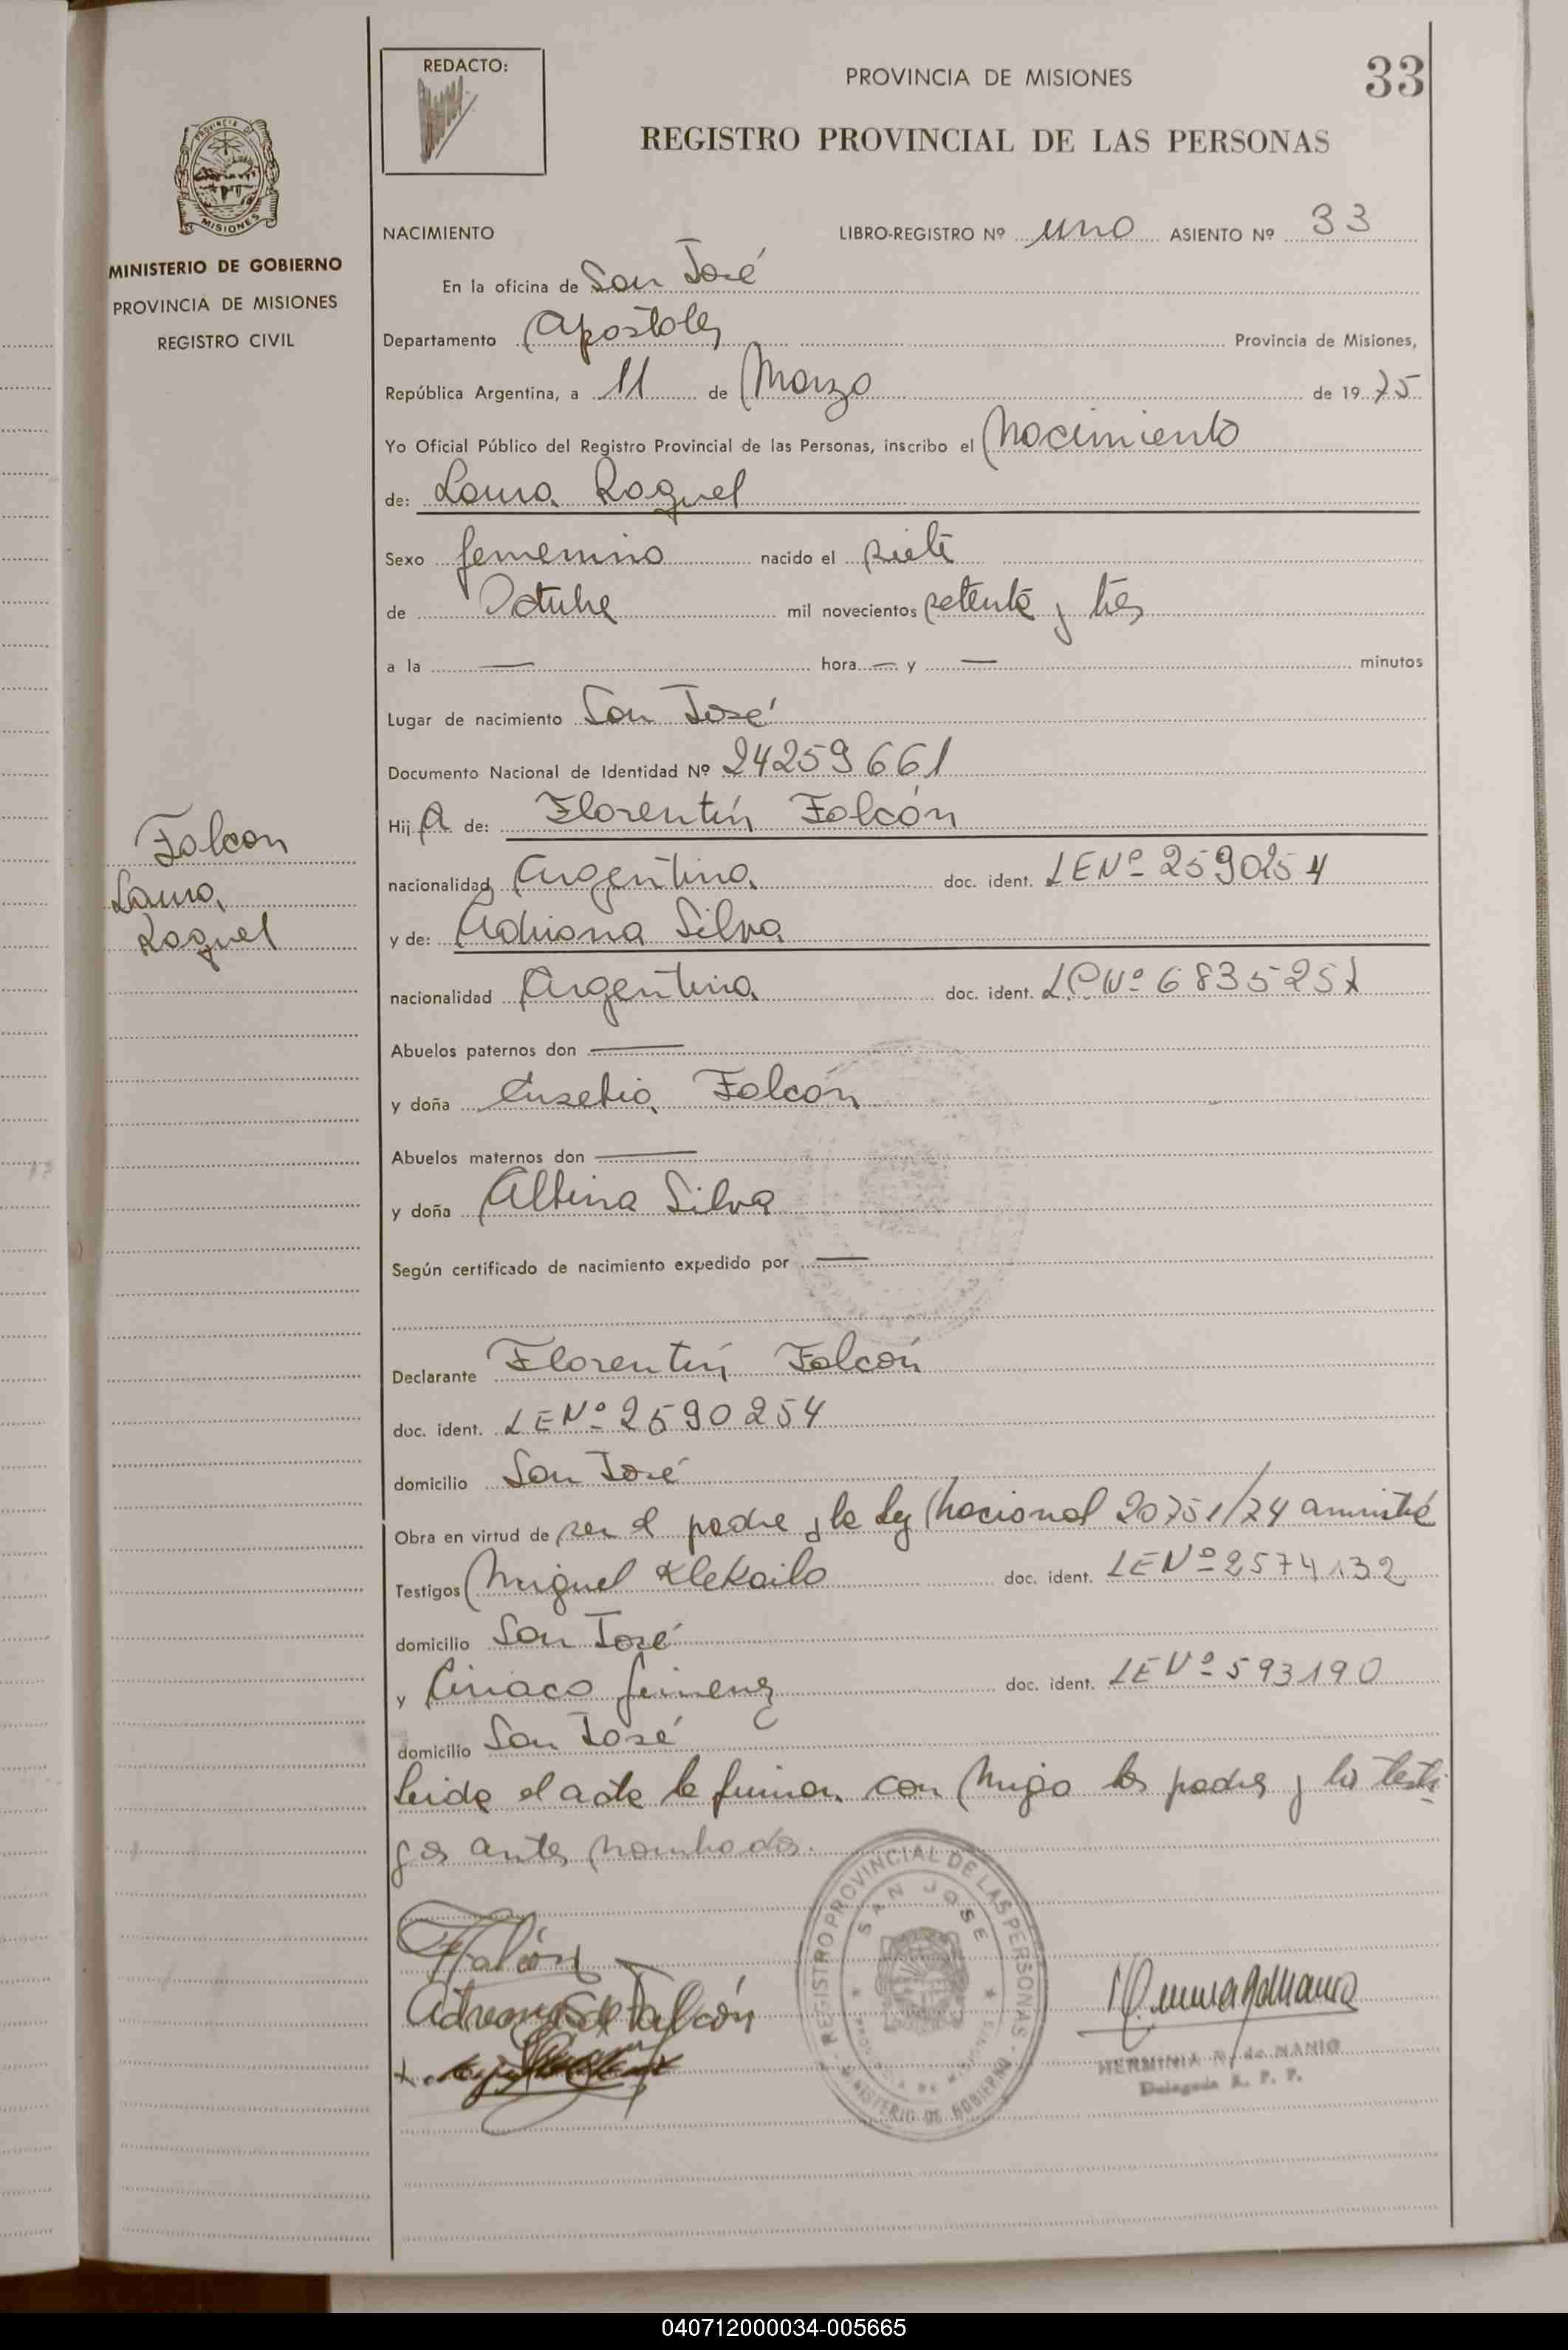 REDACTO:
PROVINCIA DE MISIONES
33
REGISTRO PROVINCIAL DE LAS PERSONAS
PROVINCIA DE
MISIONES
MINISTERIO DE GOBIERNO
PROVINCIA DE MISIONES
REGISTRO CIVIL
NACIMIENTO LIBRO-REGISTRO Nº uno ASIENTO Nº 33
En la oficina de San José
Departamento Apostoles Provincia de Misiones,
República Argentina, a 11 de Marzo de 1975
Yo Oficial Público del Registro Provincial de las Personas, inscribo el Nacimiento
de: Laura Raquel
Sexo femenino nacido el siete
de Octubre mil novecientos setenta y tres
a la — hora — y — minutos
Lugar de nacimiento San José
Documento Nacional de Identidad Nº 24259661
Hija de: Florentín Falcón
Falcon
Laura
Raquel
nacionalidad Argentina doc. ident. LE Nº 2590254
y de: Adriana Silva
nacionalidad Argentina doc. ident. L.C Nº 6835251
Abuelos paternos don —
y doña Eusebia Falcón
Abuelos maternos don —
y doña Albina Silva
Según certificado de nacimiento expedido por —
Declarante Florentín Falcón
doc. ident. LE Nº 2590254
domicilio San José
Obra en virtud de ser el padre y la ley Nacional 20751/74 amnistía
Testigos Miguel Klekailo doc. ident. LE Nº 2574132
domicilio San José
y Ciriaco Jimenez doc. ident. LE Nº 593190
domicilio San José
Leida el acta la firman con migo los padres y los testi-
gos antes nombrados.
REGISTRO PROVINCIAL DE LAS PERSONAS
SAN JOSE
PROVINCIA DE MISIONES
MINISTERIO DE GOBIERNO
Falcón
Adriana S de Falcón
HERMINIA N. de NANIO
Delegada R. P. P.
040712000034-005665